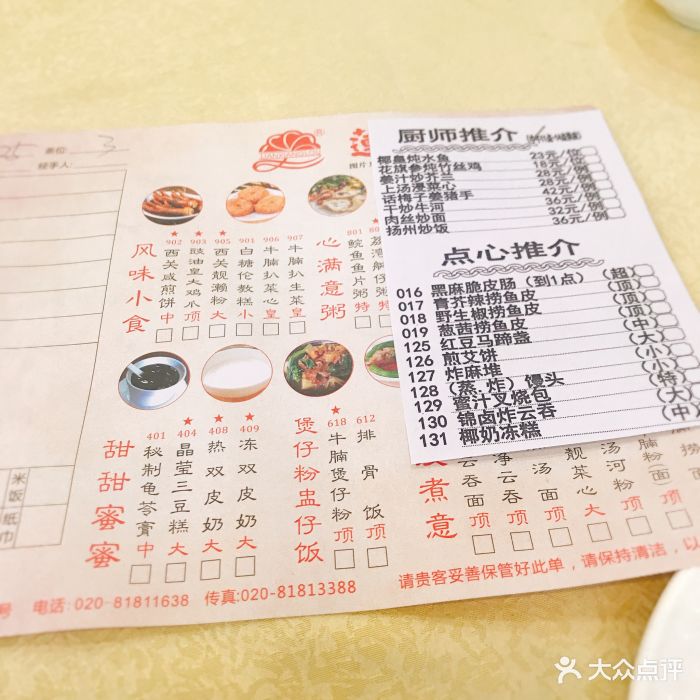 25 桌位: 3
经手人:
LIANXIANGLOU
莲
图片
厨师推介
椰皇炖水鱼 23元/位
花旗参炖竹丝鸡 18元/位
姜汁炒芥兰 28元/例
上汤浸菜心 28元/例
话梅子姜猪手 42元/例
干炒牛河 36元/例
肉丝炒面 32元/例
扬州炒饭 36元/例
点心推介
016 黑麻脆皮肠(到1点) (超)
017 青芥辣捞鱼皮 (顶)
018 野生椒捞鱼皮 (顶)
019 葱茜捞鱼皮 (顶)
125 红豆马蹄盏 (中)
126 煎艾饼 (大)
127 炸麻堆 (小)
128 (蒸、炸)馒头 (小)
129 蜜汁叉烧包 (特)
130 锦卤炸云吞 (大)
131 椰奶冻糕 (中)
风味小食
902 西关咸煎饼 中
903 豉油皇大鸡爪 顶
905 西关靓濑粉 大
901 白糖伦教糕 小
906 牛腩扒菜心 皇
907 牛腩扒生菜 皇
心满意粥
801 鲩鱼片粥 特
甜甜蜜蜜
401 秘制龟苓膏 中
404 晶莹三豆糕 大
408 热双皮奶 大
409 冻双皮奶 大
煲仔粉盅仔饭
618 牛腩煲仔粉 顶
612 排骨饭 顶
煮意
米饭
纸巾
号 电话:020-81811638 传真:020-81813388
请贵客妥善保管好此单,请保持清洁,以
大众点评